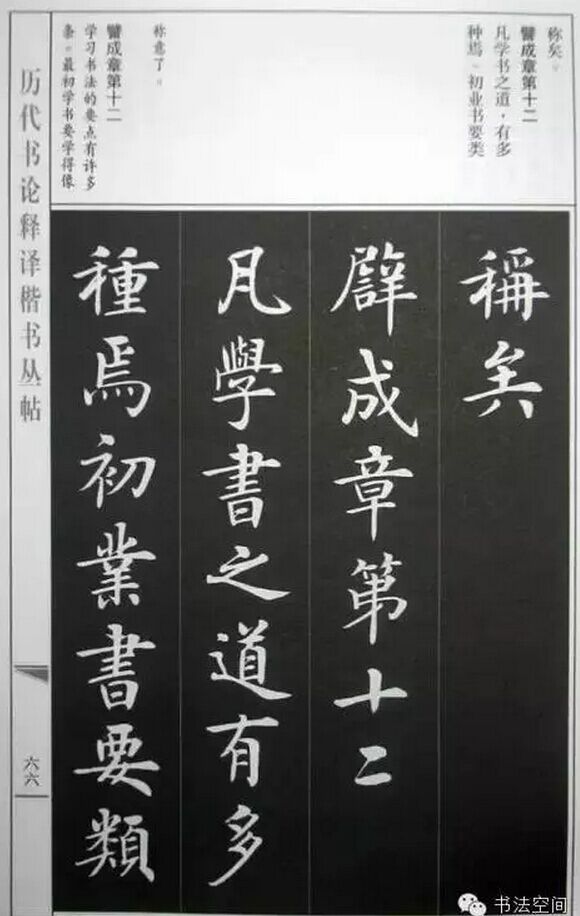 称矣。
譬成章第十二
凡学书之道，有多
种焉。初业书要类
称意了。
譬成章第十二
学习书法的要点有许多
条。最初学书要学得像
稱矣
辟成章第十二
凡學書之道有多
種焉初業書要類
历代书论释译楷书丛帖
六六
书法空间